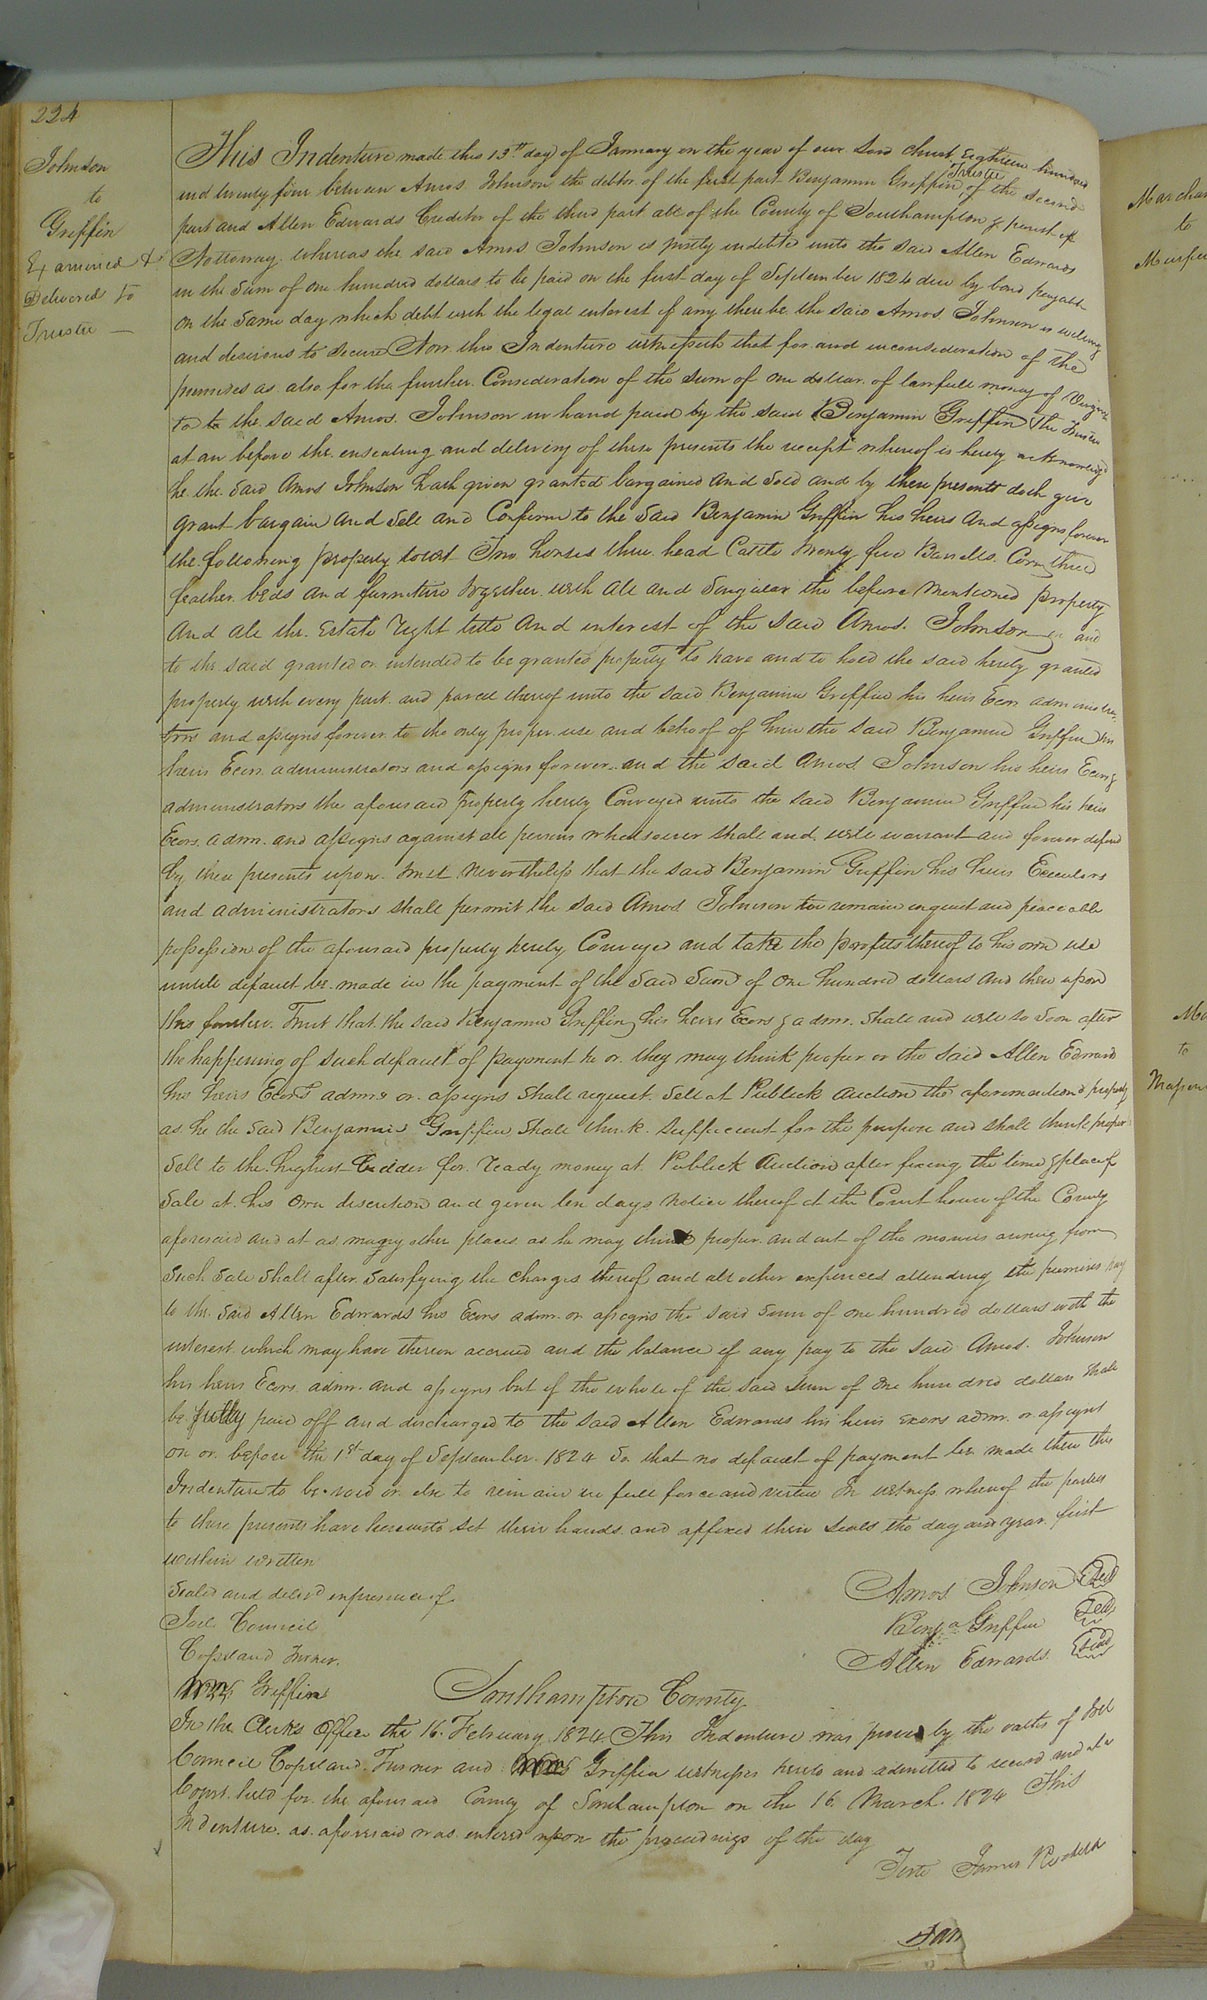 224
Johnson
to
Griffin
Examined &
Delivered to
Trustee —
This Indenture made this 13th day of January on the year of our Lord Christ Eighteen hundred
and twenty four between Amos Johnson the debtor of the first part Benjamin Griffin Trustee of the second
part and Allen Edwards Creditor of the third part all of the County of Southampton & parish of
Nottoway. whereas the said Amos Johnson is justly indebted unto the said Allen Edwards
in the Sum of one hundred dollars to be paid on the first day of September 1824 due by bond payable
on the same day which debt with the legal interest if any there be the said Amos Johnson is willing
and desirous to secure Now this Indenture witnesseth that for and inconsideration of the
premises as also for the further Consideration of the sum of one dollar of lawfull money of
to to the said Amos Johnson in hand paid by the said Benjamin Griffin the Trustee
at an before the ensealing and delivery of these presents the receipt whereof is hereby acknowledged
he the said Amos Johnson hath given granted bargained and Sold and by these presents doth give
grant bargain and Sell and Confirm to the said Benjamin Griffin his heirs and assigns forever
the following property towit Two horses three head Cattle twenty five Barrells Corn three
feather beds and furniture together with all and Singular the before mentioned property
And all the Estate right title and interest of the said Amos Johnson in and
to the said granted or intended to be granted property To have and to hold the said hereby granted
property with every part and parcel thereof unto the said Benjamin Griffin his heirs Ecors administra-
tors and assigns forever to the only proper use and behoof of him the said Benjamin Griffin his
heirs Ecors administrators and assigns forever and the said Amos Johnson his heirs Ecors &
administrators the aforesaid property hereby Conveyed unto the said Benjamin Griffin his heirs
Ecors. adm. and assigns against all persons whatsoever shall and will warrant and forever defend
by these presents upon Trust Nevertheless that the said Benjamin Griffin his heirs Executors
and administrators shall permit the said Amos Johnson too remain in quiet and peaceable
possession of the aforesaid property hereby Conveyed and take the profits thereof to his own use
untill default be made in the payment of the said Sum of One hundred dollars And then upon
this further Trust that the said Benjamin Griffin his heirs Ecors & adm. shall and will so soon after
the happening of such default of payment he or they may think proper or the said Allen Edwards
his heirs Ecors adms or assigns shall request Sell at Publick Auction the aforementiond property
as he the said Benjamin Griffin shall think sufficient for the purpose and shall think proper
Sell to the highest bidder for ready money at Publick Auction after fixing the time & place of
Sale at his own discretion and given ten days notice thereof at the Court house of the County
aforesaid and at as many other places as he may think proper and out of the monies arising from
Such Sale shall after Satisfying the charges thereof and all other expences attending the premises pay
to the said Allen Edwards his Ecors adm. or assigns the said Sum of one hundred dollars with the
interest which may have thereon accrued and the balance if any pay to the said Amos Johnson
his heirs Ecors adm. and assigns but if the whole of the said Sum of One hundred dollars shall
be fully paid off and discharged to the said Allen Edwards his heirs exors adm. or assigns
on or before the 1st day of September 1824 So that no default of payment be made then this
Indenture to be void or else to remain in full force and virtue In witness whereof the parties
to these presents have hereunto Set their hands and affixed their Seals the day and year first
within written
Sealed and deliv'd in presence of
Joel Council
Copeland Turner.
Griffin
Amos Johnson Seal
Benja Griffin Seal
Allen Edwards. Seal
Southampton County
In the Clerks Office the 16. February 1824. This Indenture was proved by the oaths of Joel
Council Copeland Turner and Griffin witnesses hereto and admitted to record and at a
Court held for the aforesaid County of Southampton on the 16. March 1824 This
Indenture as aforesaid was entered upon the proceedings of the day
Teste James Rochelle
Marchan
to
Mo
to